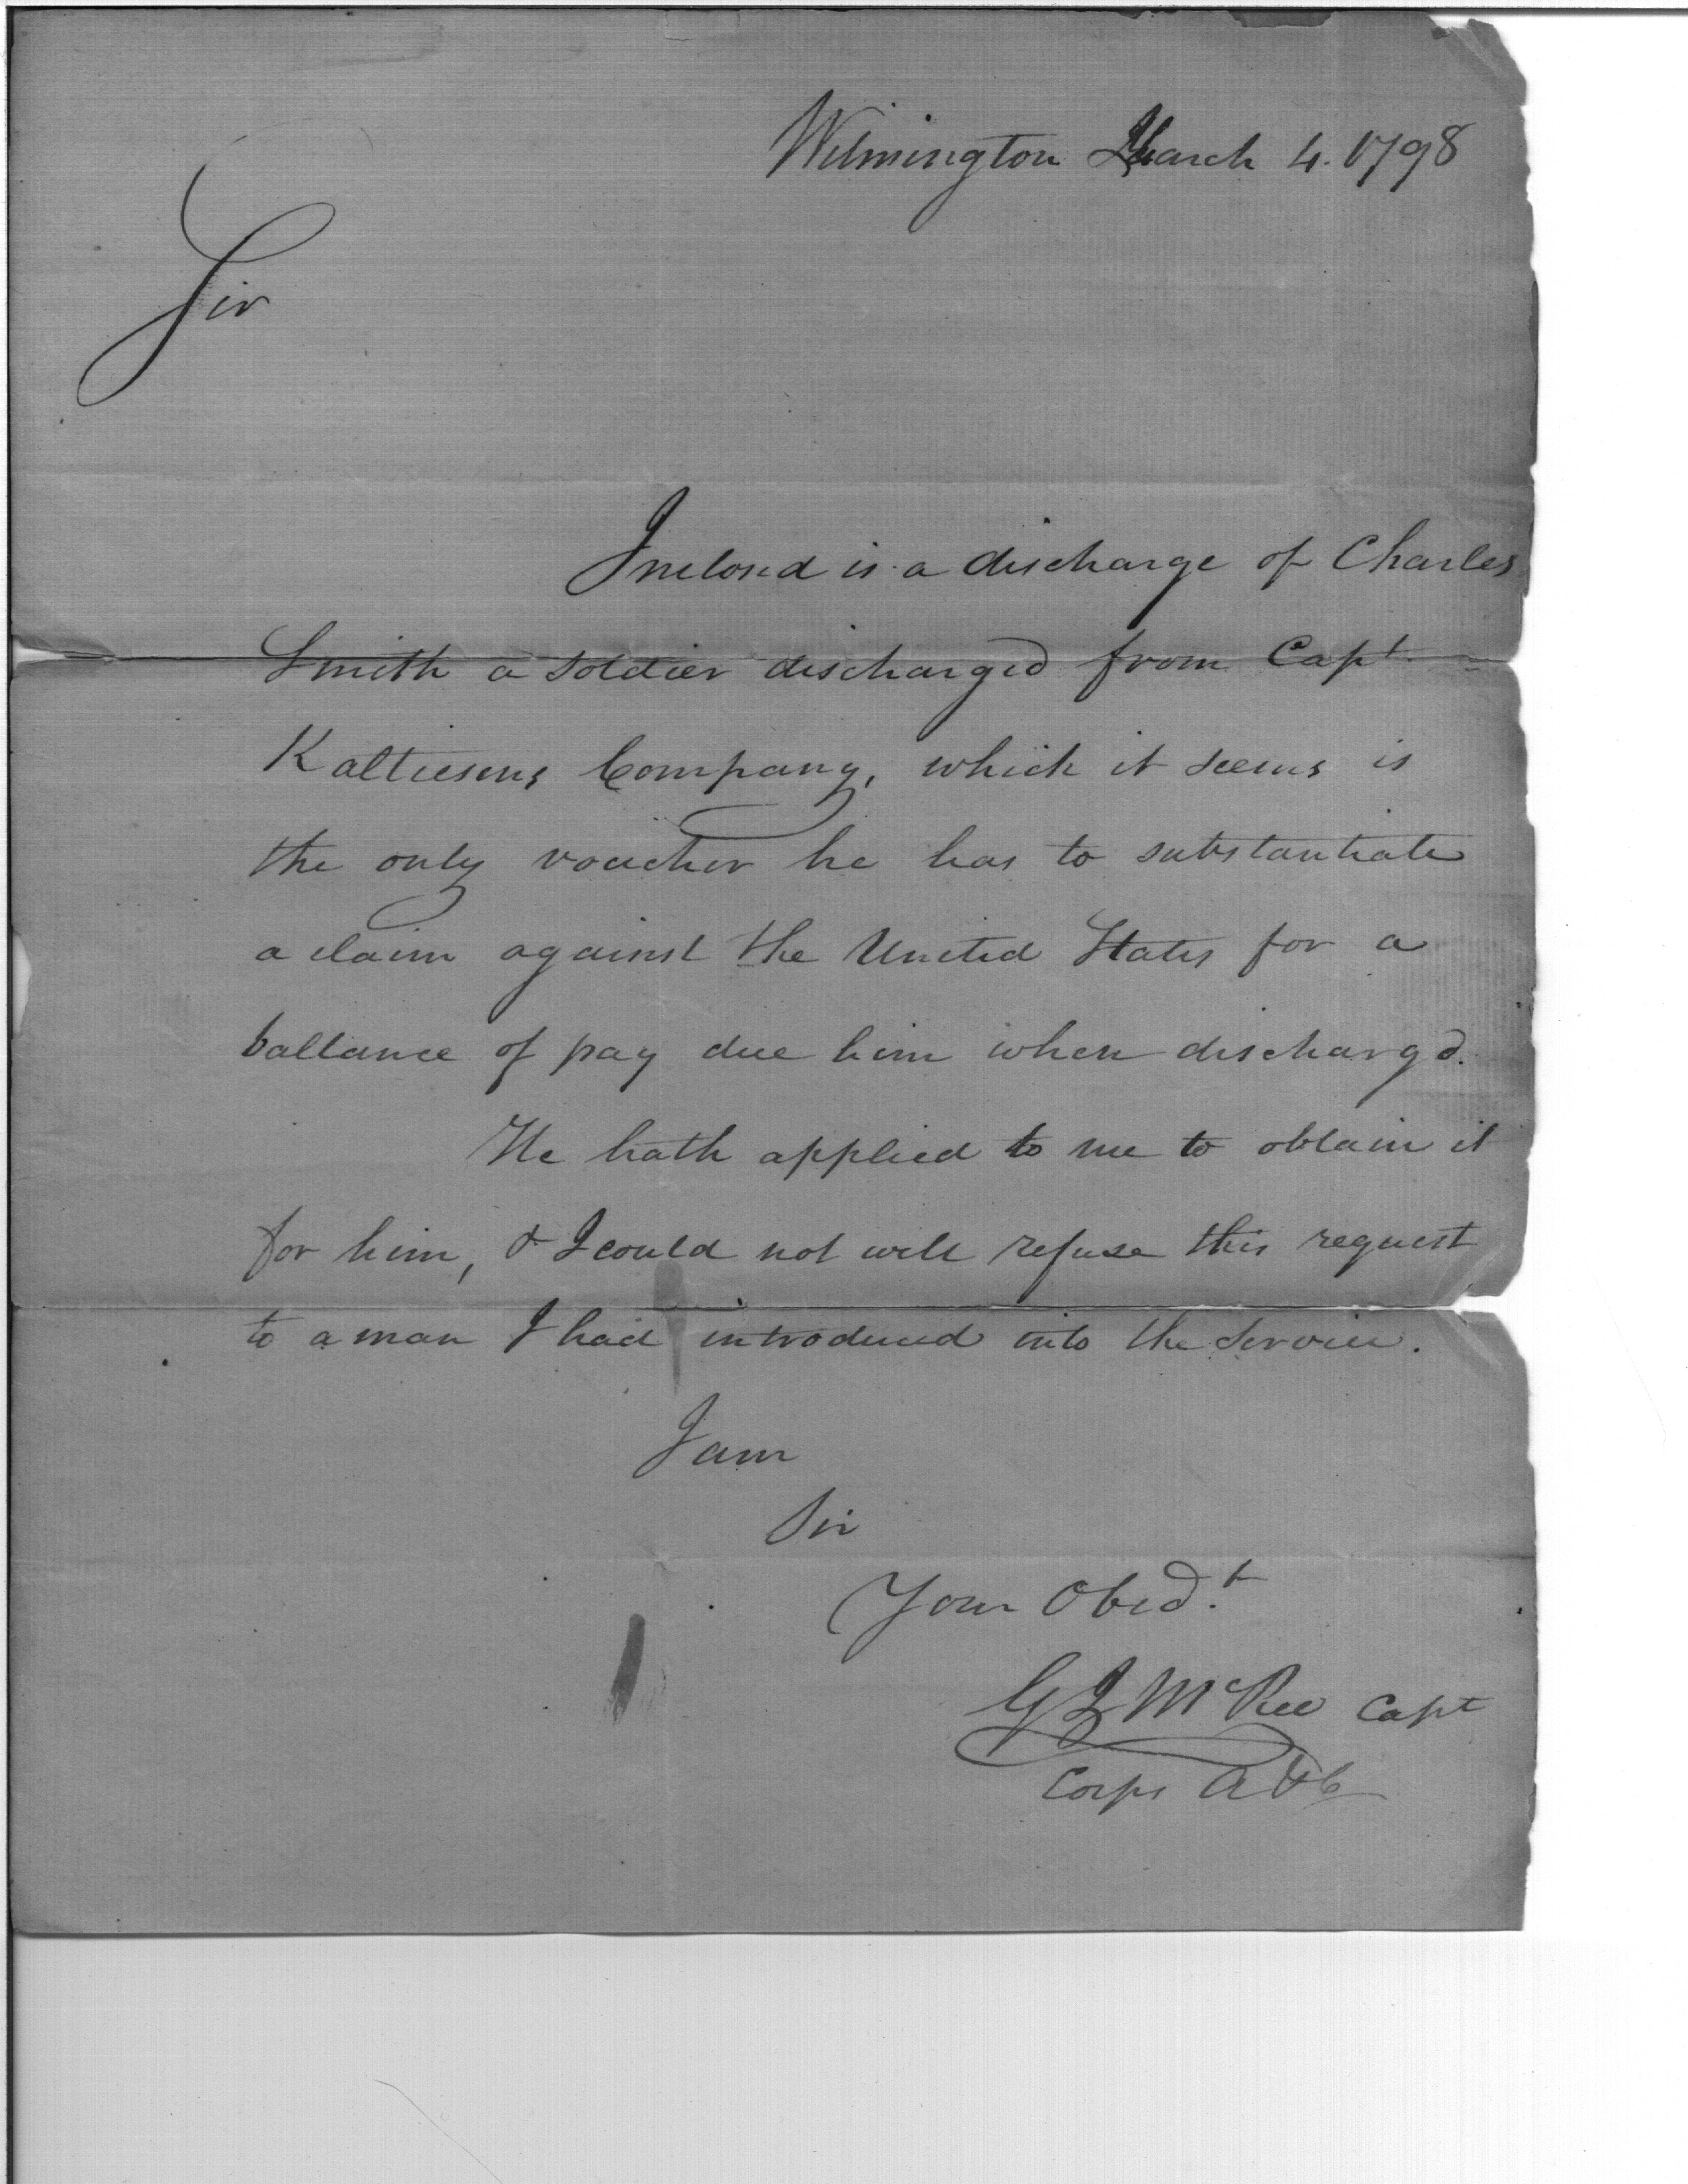 Wilmington March 4. 1798
Sir
Inclosed is a discharge of Charles
Smith a soldier discharged from Capt.
Kalteisens Company, which it seems is
the only voucher he has to substantiate
a claim against the United States for a
ballance of pay due him when dischargd.
He hath applied to me to obtain it
for him, & I could not well refuse this request
to a man I had introduced into the Service.
I am
Sir
Your Obedt.
G J McRee Capt
Corps A & E